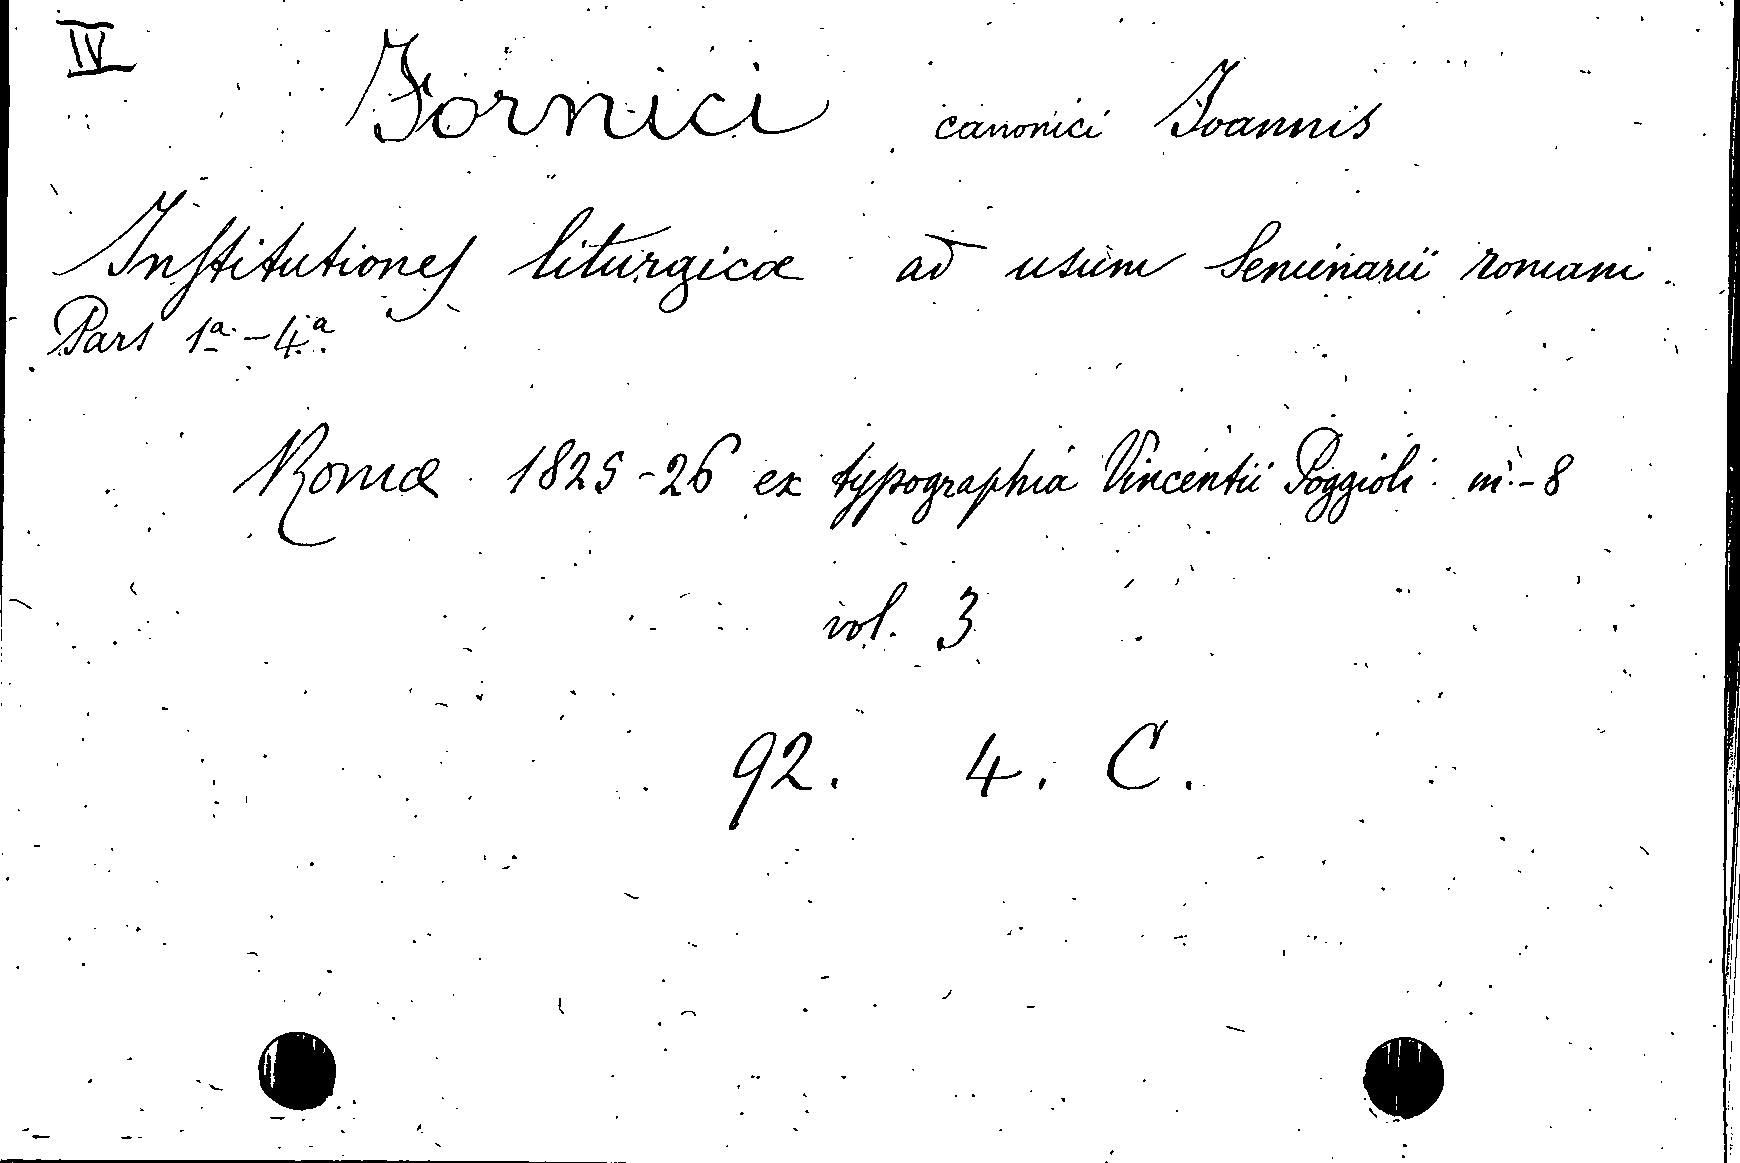 IV
Fornici canonici Joannis
Institutiones liturgicæ ad usum Seminarii romani
Pars 1a - 4a
Romæ 1825-26 ex typographia Vincentii Poggioli in-8
vol. 3
92. 4. C.